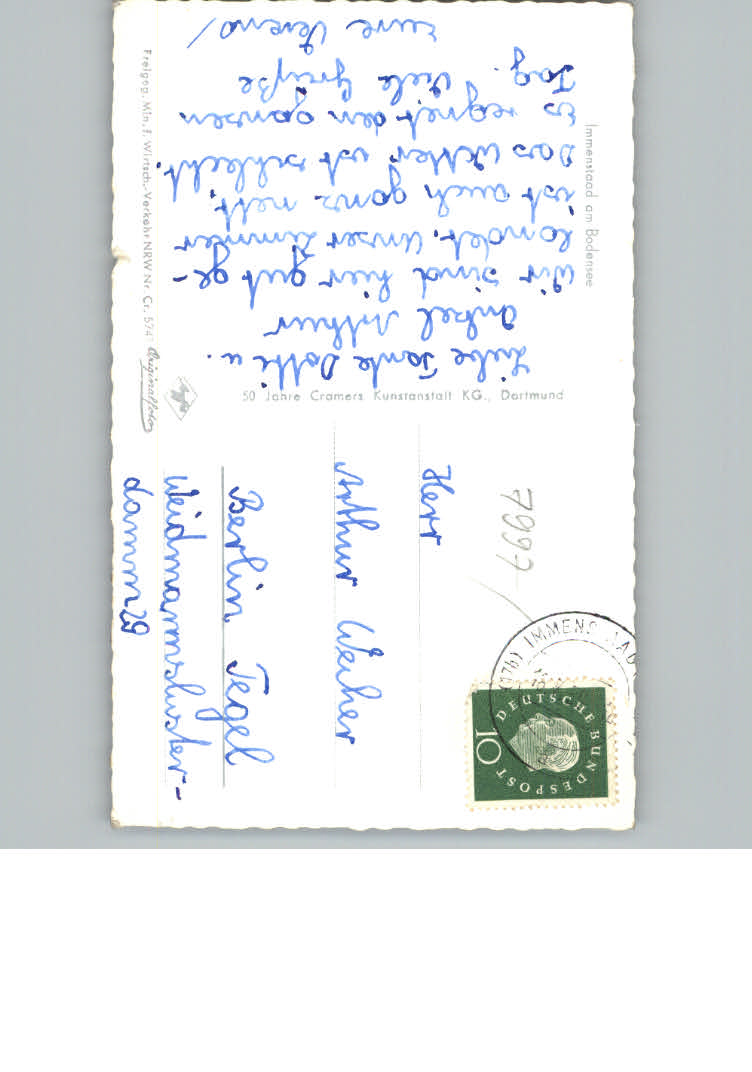 Liebe Tante Dotti u.
Onkel Arthur
Wir sind hier gut ge-
landet. Unser Zimmer
ist auch ganz nett.
Das Wetter ist schlecht.
Es regnet den ganzen
Tag. Viele Grüße
Eure
Immenstaad am Bodensee
50 Jahre Cramers Kunstanstalt KG., Dortmund
Freigeg. Min. f. Wirtsch. u. Verkehr NRW Nr. Cr. 5747
Originalfoto
7997
Herr
Arthur Weiher
Berlin Tegel
Weidmannsluster-
damm 29
(17b) IMMENSTAAD
DEUTSCHE BUNDESPOST
10